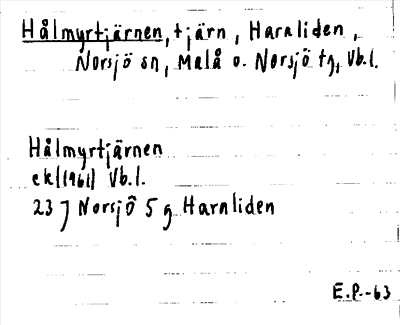 Hålmyrtjärnen, tjärn, Harnliden,
Norsjö sn, Malå o. Norsjö tg, Vb.l.
Hålmyrtjärnen
ek (1961) Vb.l.
23 J Norsjö 5 g Harnliden
E.P.-63